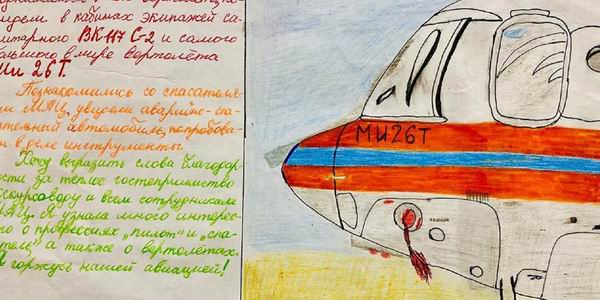 сидели в кабинах экипажей са-
нитарного ВК 117 С-2 и самого
большого в мире вертолёта
Ми 26Т.
Познакомились со спасателя-
ми МАЦ, увидели аварийно-спа-
сательный автомобиль, попробова-
ли в деле инструменты.
Хочу выразить слова благодар-
ности за теплое гостеприимство
экскурсоводу и всем сотрудникам
МАЦ. Я узнала много интерес-
ного о профессиях "пилот" и "спа-
сатель" а также о вертолётах.
Я горжусь нашей авиацией!
МИ26Т